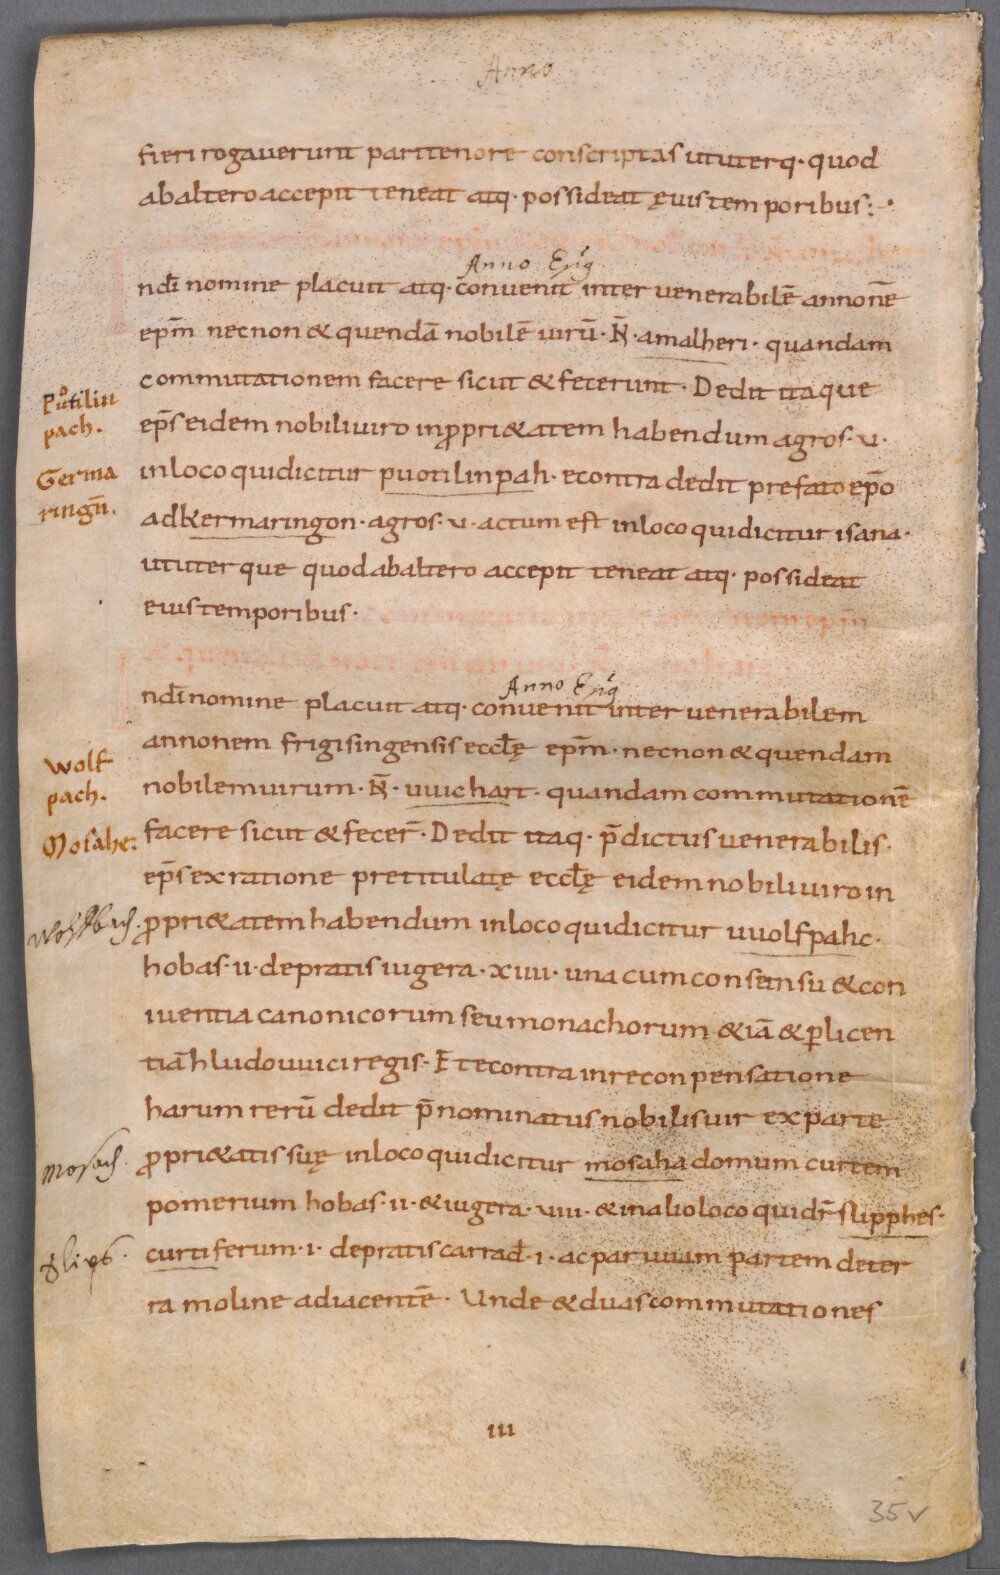 Anno
fieri rogauerunt pari tenore conscriptas ut uterq· quod
ab altero accepit teneat atq· possideat ęuis temporibus:·
Anno Epg
ndi nomine placuit atq· conuenit inter uenerabilē annonē
ep̄m necnon & quendā nobilē uirū· N̄· amalheri· quandam
commutationem facere sicut & fecerunt· Dedit itaque
Puͦtilin
pach.
ep̄s eidem nobili uiro in ꝓpri&atem habendum agros· u·
Germa
ringn̄.
in loco qui dicitur puotilinpah· econtra dedit prefato ep̄o
ad kermaringon· agros· u· actum est in loco qui dicitur isana·
ut uterque quod ab altero accepit teneat atq· possideat
euis temporibus·
Anno Epg
nd̄i nomine placuit atq· conuenit inter uenerabilem
annonem frigisingensis eccłę ep̄m· necnon & quendam
wolf
pach.
nobilem uirum· N̄· uuichart· quandam commutationē
Mosahe:
facere sicut & fecer̄· Dedit itaq· p̄dictus uenerabilis·
ep̄s ex ratione pretitulatę eccłę eidem nobili uiro in
Wolfbach.
ꝓpri&atem habendum in loco qui dicitur uuolfpahc·
hobas· ii· de pratis iugera· xiiii· una cum consensu & con
iuentia canonicorum seu monachorum &iā & ꝑ licen
tiā hludouuici regis· Et econtra in reconpensatione
harum rerū dedit p̄nominatus nobilis uir ex parte
Mosach.
ꝓpri&atis suę in loco qui dicitur mosaha domum curtem
pomerium hobas· ii· & iugera· uiii· & in alio loco qui dr̄ slipphes·
curtiferum· i· de pratis carrad̄· i· ac paruuam partem deter
ra moline adiacentē· Unde & duas commutationes
iii
35v